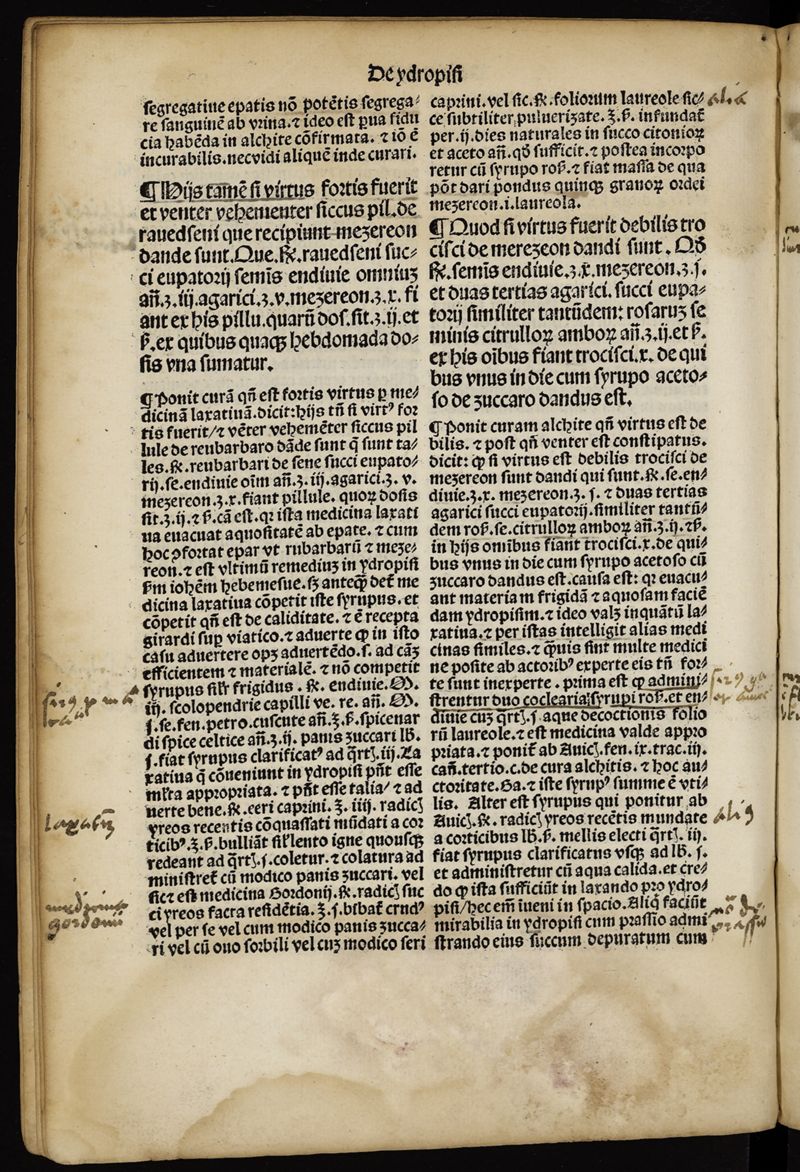 De ydropisi
segregatiue epatis nō potētis segrega⸗
re sanguinē ab vrina.⁊ ideo est pua fidu
cia habēda in alchite cōfirmata. ⁊ iō ē
incurabilis.necvidi aliquē inde curari.
¶ Hijs tamē si virtus fortis fuerit
et venter vehementer siccus pil. de
rauedseni que recipiunt mezereon
dande sunt. Que. ℞. rauedseni suc⸗
ci eupatorij semīs endiuie omniuȝ
añ.ʒ.iij.agarici.ʒ.v.mezereon.ʒ.x. fi
ant ex his pillu.quarū dos.sit.ʒ.ij.et
ß.ex quibus quaqȝ hebdomada do⸗
sis vna sumatur.
¶ Ponit curā qñ est fortis virtus p me/
dicinā laxatiuā.dicit:hijs tñ si virtꝰ for
tis fuerit/⁊ vēter vehemēter siccus pil
lule de reubarbaro dāde sunt q̄ sunt ta/
les.℞.reubarbari de sene succi eupato/
rij.se.endiuie oīm añ.ʒ.iij.agarici.ʒ. v.
mezereon.ʒ.x.fiant pillule. quoꝝ dosis
sit.ʒ.ij.⁊ ß.cā est.qꝛ ista medicina laxati
ua euacuat aquositatē ab epate. ⁊ cum
hoc ꝯfortat epar vt rubarbarū ⁊ meze/
reon.⁊ est vltimū remediuȝ in ydropisi
ẜm iohēm hebemesue.sȝ anteqȝ det̄ me
dicina laxatiua cōpetit iste syrupus. et
cōpetit qñ est de caliditate. ⁊ ē recepta
girardi sup viatico.⁊ aduerte ꝙ in isto
casu aduertere opȝ aduertēdo.s. ad cāȝ
efficientem ⁊ materialē. ⁊ nō competit
syrupus sil̄r frigidus . ℞. endiuie. M.
iij. scolopendrie capilli ve. re. añ. M.
j.se.fen.petro.cuscute añ.ʒ.ß.spicenar
di spice celtice añ.ʒ.ij. panis zuccari lb.
j.fiat syrupus clarificatꝰ ad q̄rt̄.iij. La
xatiua q̄ cōueniunt in ydropisi pñt esse
ml̄ta appropriata. ⁊ pñt esse talia/ ⁊ ad
uerte bene.℞.ceri caprini.ʒ. iiij. radic̄
yreos recentis cōquassati mūdati a cor
ticibꝰ.ʒ.ß.bulliāt sil̄ lento igne quousqȝ
redeant ad q̄rt̄.j.coletur.⁊ colatura ad
ministret̄ cū modico panis zuccari. vel
sic⁊ est medicina Gordonij.℞.radic̄ suc
ci yreos facta residētia.ʒ.j.bibat̄ crudꝰ
vel per se vel cum modico panis zucca/
ri vel cū ouo sorbili vel cuȝ modico seri
caprini.vel sic.℞.foliorum laureole sic/
ce subtiliter pulueri​zate.ʒ.ß. infundāt̄
per.ij.dies naturales in succo citonioꝝ
et aceto añ.qđ sufficit.⁊ postea incorpo
retur cū syrupo ros̄.⁊ fiat massa de qua
pōt dari pondus quinqȝ granoꝝ ordei
mezereon.i.laureola.
¶ Quod si virtus fuerit debilis tro
cisci de merezeon dandi sunt. Qđ
℞.semīs endiuie.ʒ.x.mezereon.ʒ.j.
et duas tertias agarici. succi eupa⸗
torij similiter tantūdem: rosaruȝ se
minis citrulloꝝ amboꝝ añ.ʒ.ij.et ß.
ex his oībus fiant trocisci.x. de qui
bus vnus in die cum syrupo aceto⸗
so de zuccaro dandus est.
¶ Ponit curam alchite qñ virtus est de
bilis. ⁊ post qñ venter est constipatus.
dicit: ꝙ si virtus est debilis trocisci de
mezereon sunt dandi qui sunt.℞.se.en/
diuie.ʒ.x. mezereon.ʒ. j. ⁊ duas tertias
agarici succi eupatorij.similiter tantū/
dem ros̄.se.citrulloꝝ amboꝝ añ.ʒ.ij.⁊ß.
in hijs omībus fiant trocisci.x.de qui/
bus vnus in die cum syrupo acetoso cū
zuccaro dandus est.causa est: qꝛ euacu/
ant materiam frigidā ⁊ aquosam faciē
dam ydropisim.⁊ ideo valȝ inquātū la/
xatiua.⁊ per istas intelligit alias medi
cinas similes.⁊ ꝙuis sint multe medici
ne posite ab actoribꝰ experte eis tñ for/
te sunt inexperte . prima est ꝙ admini/
strentur duo coclearia syrupi ros̄.et en/
diuie cuȝ q̄rt̄.j aque decoctionis folio
rū laureole.⁊ est medicina valde appro
priata.⁊ ponit̄ ab Auic̄.fen.ix.trac.iij.
cañ.tertio.c.de cura alchitis. ⁊ hoc au/
ctoritate.Ga.⁊ iste syrupꝰ summe ē vti/
lis. Alter est syrupus qui ponitur ab
Auic̄.℞. radic̄ yreos recētis mundate
a corticibus lb.ß. mellis electi q̄rt̄. iij.
fiat syrupus clarificatus vsqȝ ad lb. j.
et administretur cū aqua calida.et cre/
do ꝙ ista sufficiūt in laxando pro ydro/
pisi/hec em̄ iueni in spacio.Aliq̄ faciūt
mirabilia in ydropisi cum prassio admi
strando eius succum depuratum cum
gordonii